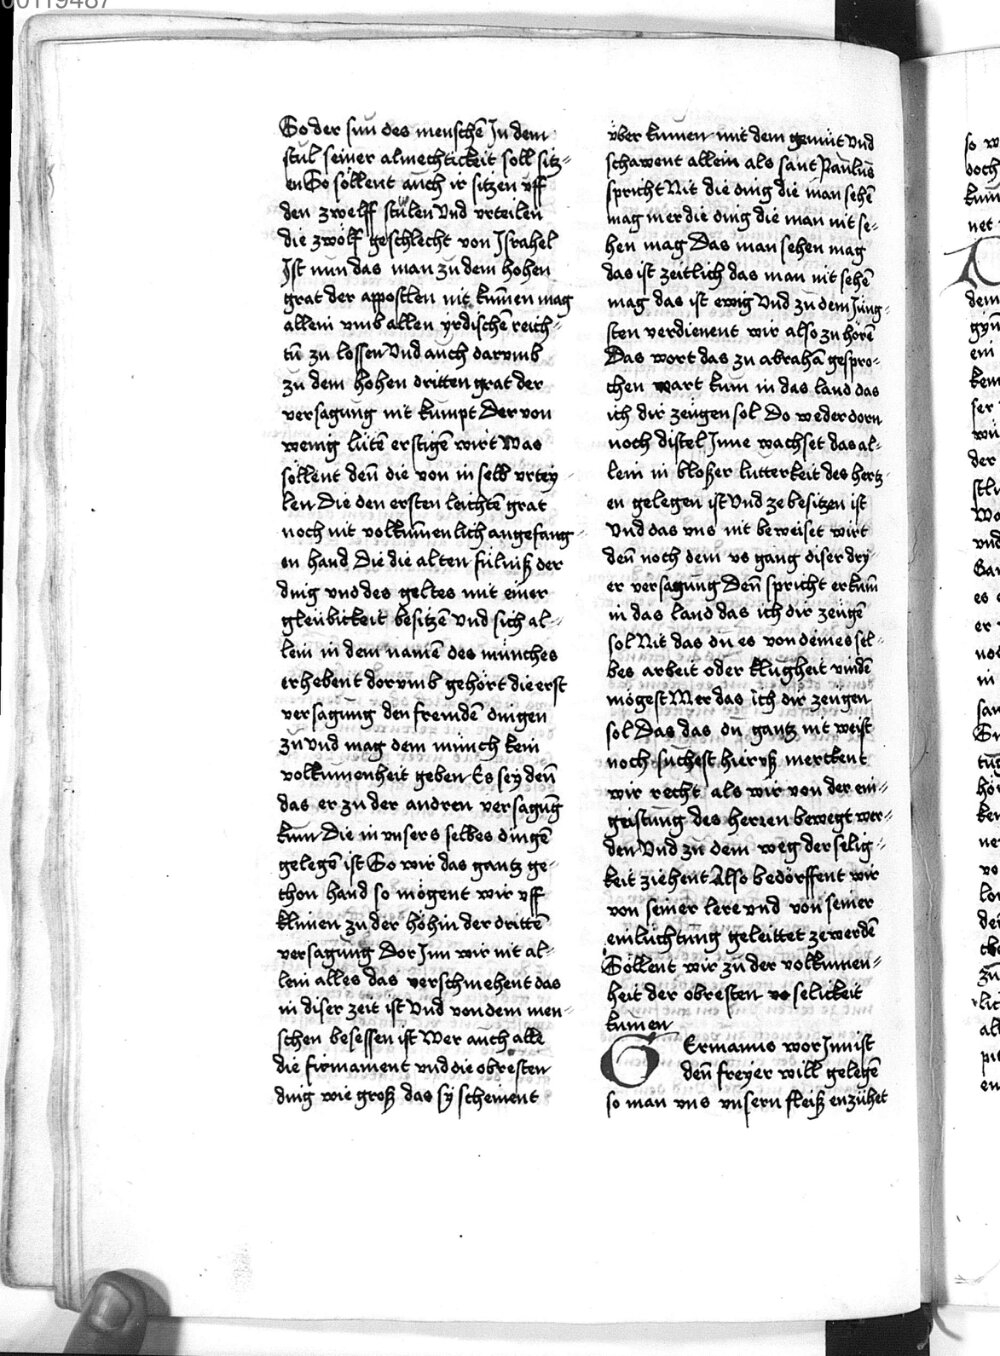 00119487
So der sun des menschẽ Jn dem
stůl seiner almechtickeit soll sitz=
en So sóllent aůch ir sitzen vff
den zwelff stůlen Vnd vrteilen
die zwólf geschlecht von Jsrahel
Jst nůn das man zů dem hohen
grat der appostlen nit kum̃en mag
allein vmb allen yrdischen reich=
tũ zu lossen Vnd aůch darumb
zů dem hohen dritten grat der
versagung nit kumpt Der von
wenig lútẽ erstigẽ wirt Was
sóllent deñ die von in selb vrtey=
len Die den ersten leichtẽ grat
noch nit volkum̃enlich angefang=
en hand Die die alten fúlniß der
ding vnd des geltes mit einer
gleúbickeit besitzẽ Vnd sich al=
lein in dem namẽ des múnches
erhebent dorumb gehórt die erst
versagůng den fremdẽ dingen
zů Vnd mag dem múnch kein
volkumenheit geben Es sey deñ
das er zů der andren versagũg
kum Die in vnsers selbes dingẽ
gelegẽ ist So wir das gantz ge=
thon hand so mógent wir vff
klimen zů der hóhin der drittẽ
versagůng Dor Jnn wir nit al=
lein alles das verschmehent das
in diser zeit ist Vnd von dem men=
schen besessen ist Wer aůch alle
die firmament vnd die obresten
ding wie groß das sy scheinent
úber kumen mit dem gemút Vnd
schawent allein als sant Paulus
spricht Nit die ding die man sehẽ
mag mer die ding die man nit se=
hen mag Das man sehen mag
das ist zeitlich das man nit sehẽ
mag das ist ewig Vnd zů dem Júng=
sten verdienent wir also zů hórẽ
Das wort das zů abrahã gespro=
chen wart kum in das land das
ich dir zeúgen sol Do weder dorn
noch distel Jnne wachset das al=
lein in bloßer lutterkeit des hertz=
en gelegen ist Vnd ze besitzen ist
Vnd das vns nit beweiset wirt
deñ noch dem vs gang diser dry
er versagůng Deñ spricht er kum̃
in das land das ich dir zeúgẽ
sol Nit das du es von deines sel=
bes arbeit oder klůgheit vindẽ
mógest Mer das ich dir zeúgen
sol Das das dů gantz nit weist
noch sůchest hier vß merckent
wir recht als wir von der ein=
geistůng des herren bewegt wer=
den Vnd zů dem weg der selig=
keit ziehent Also bedórffent wir
von seiner lere vnd von seiner
einlúchtůng geleittet ze werdẽ
Sóllent wir zů der volkumen=
heit der obresten selickeit
kumen
GErmanus wor Jnn ist
deñ freyer will gelegẽ
so man vns vnsern fleiß enzúhet